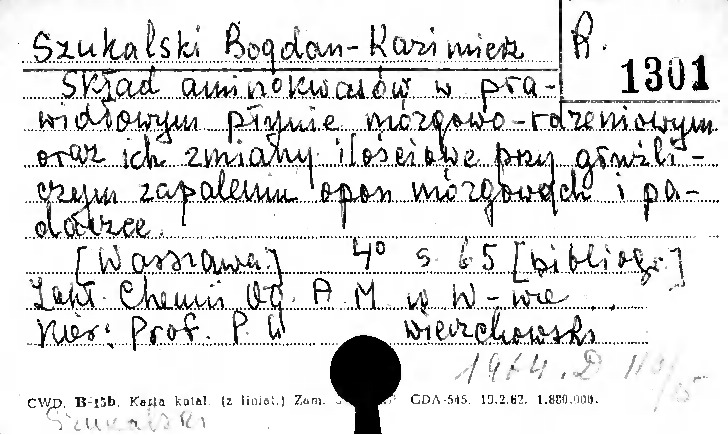 Szukalski Bogdan-Kazimierz
R.
1301
Skład aminokwasów w pra-
widłowym płynie mózgowo-rdzeniowym
oraz ich zmiany ilościowe przy gruźli-
czym zapaleniu opon mózgowych i pa-
daczce.
[Warszawa.] 4° s. 65 [bibliogr.]
Zakł. Chemii Og. A M w W-wie
Kier: Prof. P. W wierzchowski
1964. D
CWD. B-15b. Karta katal. (z liniat.) Zam. GDA-545. 19.2.62. 1.880.000.
Szukalski